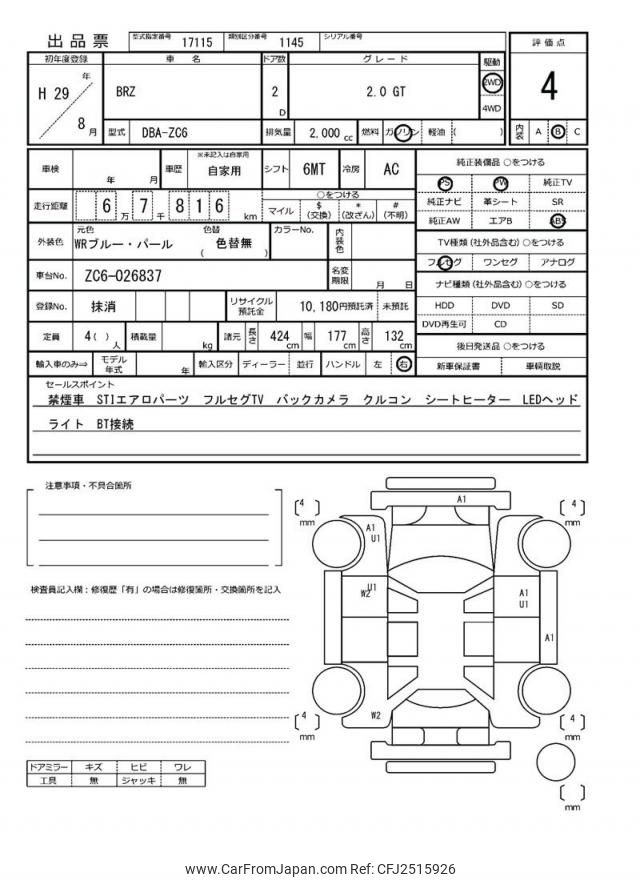 出品票 型式指定番号 17115 類別区分番号 1145 シリアル番号
評価点
4
内装 A B C
初年度登録 車名 ドア数 グレード 駆動
H 29 年 8 月 BRZ 2 D 2.0 GT 2WD 4WD
型式 DBA-ZC6 排気量 2,000 cc 燃料 ガソリン 軽油 ( )
車検 年 月 車歴 ※未記入は自家用 自家用 シフト 6MT 冷房 AC
走行距離 6 万 7 千 8 1 6 km ○をつける
マイル $(交換) *(改ざん) #(不明)
外装色 元色 WRブルー・パール 色替 色替無 ( ) カラーNo. 内装色
車台No. ZC6-026837 名変期限 月 日
登録No. 抹消 リサイクル預託金 10,180円預託済 未預託
定員 4( )人 積載量 kg 諸元 長さ 424 cm 幅 177 cm 高さ 132 cm
輸入車のみ⇒ モデル年式 年 輸入区分 ディーラー 並行 ハンドル 左 右
純正装備品 ○をつける
PS PW 純正TV
純正ナビ 革シート SR
純正AW エアB ABS
TV種類(社外品含む)○をつける
フルセグ ワンセグ アナログ
ナビ種類(社外品含む)○をつける
HDD DVD SD
DVD再生可 CD
後日発送品 ○をつける
新車保証書 車輌取説
セールスポイント
禁煙車 STIエアロパーツ フルセグTV バックカメラ クルコン シートヒーター LEDヘッド
ライト BT接続
注意事項・不具合箇所
検査員記入欄:修復歴「有」の場合は修復箇所・交換箇所を記入
ドアミラー キズ ヒビ ワレ
工具 無 ジャッキ 無
[4] mm
A1
[4] mm
A1
U1
U1
W2
A1
U1
A1
W2
[4] mm
[4] mm
[ ] mm
www.CarFromJapan.com Ref: CFJ2515926